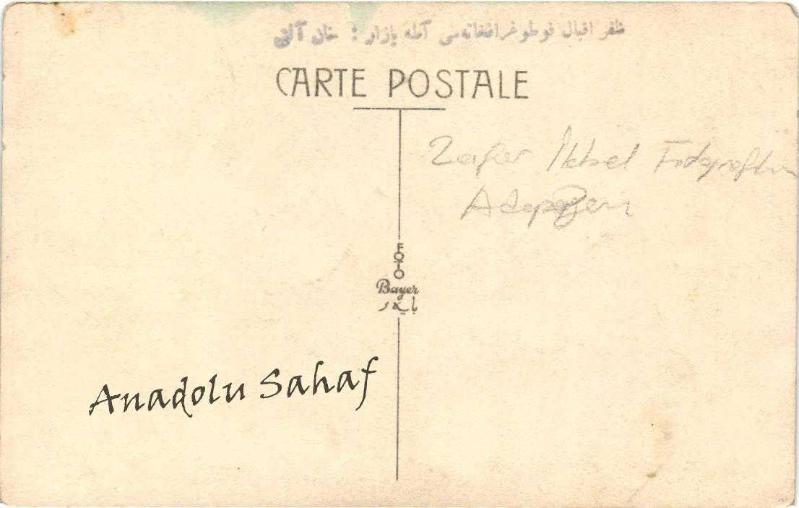 ظفر اقبال فوطوغرافخانه‌سی آطه بازار : خان آلتی
CARTE POSTALE
Zafer İkbal Fotoğrafhanesi
Adapazarı
FOTO
Bayer
بايەر
Anadolu Sahaf